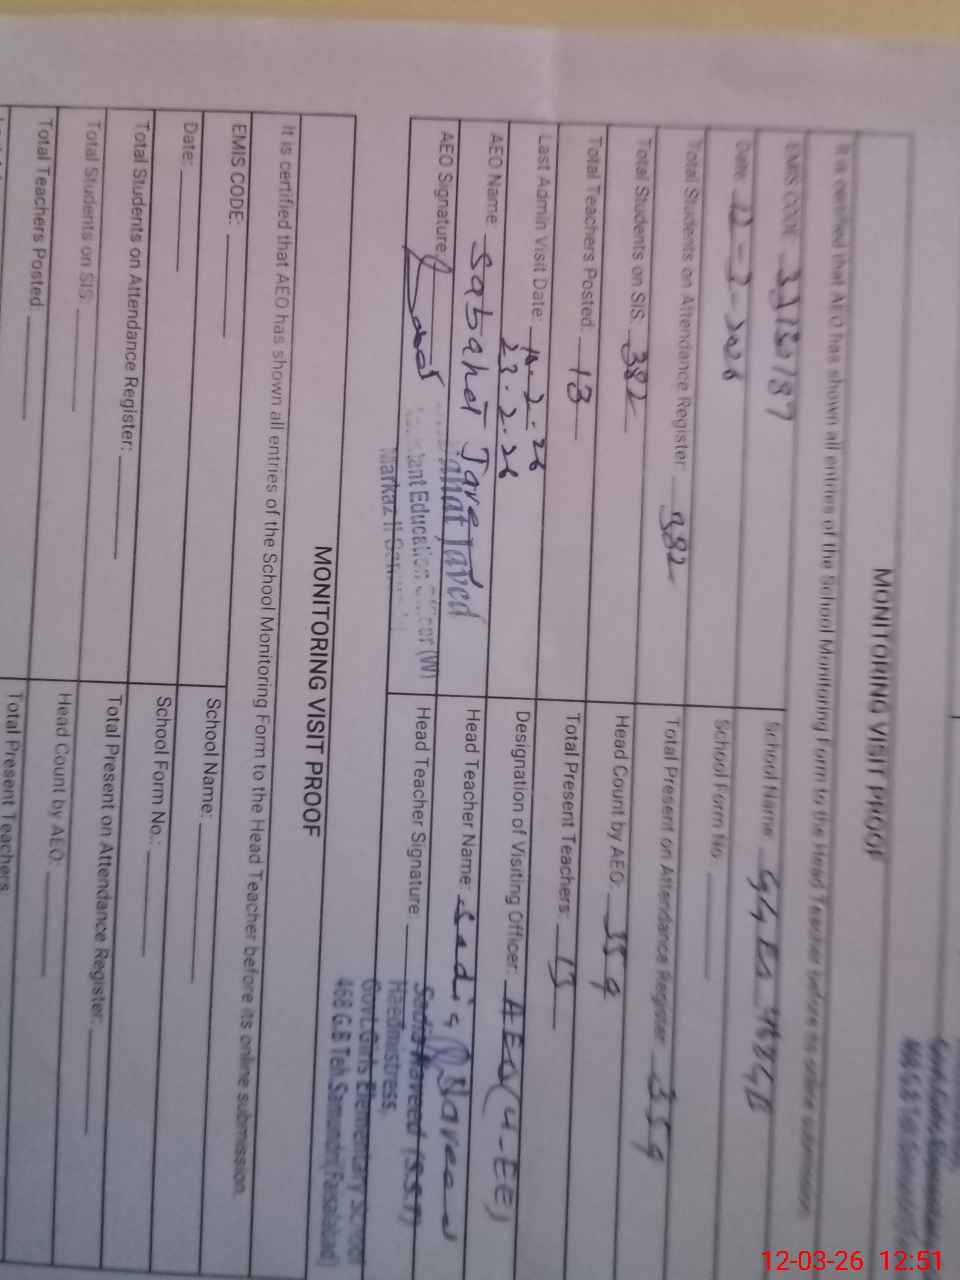 MONITORING VISIT PROOF
It is certified that AEO has shown all entries of the School Monitoring Form to the Head Teacher before its online submission.
EMIS CODE: School Name: GGES 468GB
Date: School Form No.:
Total Students on Attendance Register: 382 Total Present on Attendance Register: 359
Total Students on SIS: 382 Head Count by AEO: 359
Total Teachers Posted: 13 Total Present Teachers: 13
Last Admin Visit Date: 23.2.26 Designation of Visiting Officer: AEO(W-EE)
AEO Name: Sabahat Javed Head Teacher Name: Sadia Naveed
AEO Signature: Head Teacher Signature:
Education Officer (W)
Markaz II
Sadia Naveed (S.S.T)
Haedmistress
Govt. Girls Elementary School
468 G.B Teh. Samundri (Faisalabad)
MONITORING VISIT PROOF
It is certified that AEO has shown all entries of the School Monitoring Form to the Head Teacher before its online submission.
EMIS CODE: School Name:
Date: School Form No.:
Total Students on Attendance Register: Total Present on Attendance Register:
Total Students on SIS: Head Count by AEO:
Total Teachers Posted: Total Present Teachers:
12-03-26 12:51